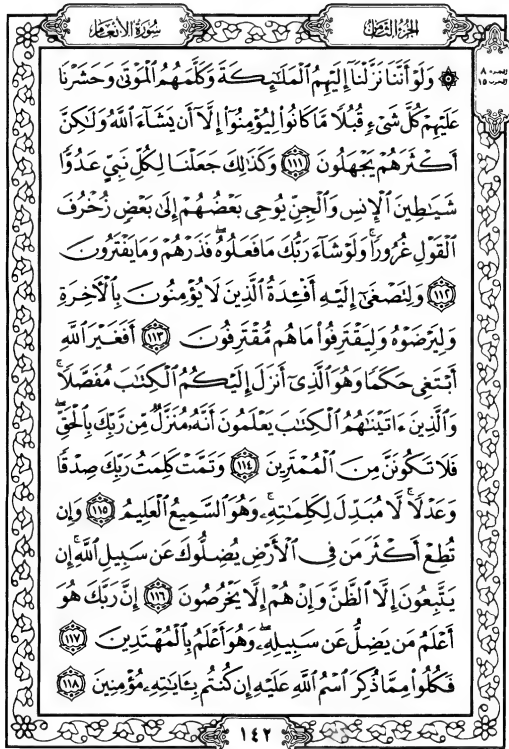 سُورَةُ الأَنْعَامِ
الجُزْءُ الثَّامِنُ
الجزء ٨
الحزب ١٥
۞ وَلَوْ أَنَّنَا نَزَّلْنَا إِلَيْهِمُ الْمَلَٰٓئِكَةَ وَكَلَّمَهُمُ الْمَوْتَىٰ وَحَشَرْنَا
عَلَيْهِمْ كُلَّ شَىْءٍ قُبُلًا مَّا كَانُوا۟ لِيُؤْمِنُوٓا۟ إِلَّآ أَن يَشَآءَ ٱللَّهُ وَلَٰكِنَّ
أَكْثَرَهُمْ يَجْهَلُونَ ١١١ وَكَذَٰلِكَ جَعَلْنَا لِكُلِّ نَبِىٍّ عَدُوًّا
شَيَٰطِينَ ٱلْإِنسِ وَٱلْجِنِّ يُوحِى بَعْضُهُمْ إِلَىٰ بَعْضٍ زُخْرُفَ
ٱلْقَوْلِ غُرُورًا ۚ وَلَوْ شَآءَ رَبُّكَ مَا فَعَلُوهُ ۖ فَذَرْهُمْ وَمَا يَفْتَرُونَ
١١٢ وَلِتَصْغَىٰٓ إِلَيْهِ أَفْـِٔدَةُ ٱلَّذِينَ لَا يُؤْمِنُونَ بِٱلْءَاخِرَةِ
وَلِيَرْضَوْهُ وَلِيَقْتَرِفُوا۟ مَا هُم مُّقْتَرِفُونَ ١١٣ أَفَغَيْرَ ٱللَّهِ
أَبْتَغِى حَكَمًا وَهُوَ ٱلَّذِىٓ أَنزَلَ إِلَيْكُمُ ٱلْكِتَٰبَ مُفَصَّلًا ۚ
وَٱلَّذِينَ ءَاتَيْنَٰهُمُ ٱلْكِتَٰبَ يَعْلَمُونَ أَنَّهُۥ مُنَزَّلٌ مِّن رَّبِّكَ بِٱلْحَقِّ ۖ
فَلَا تَكُونَنَّ مِنَ ٱلْمُمْتَرِينَ ١١٤ وَتَمَّتْ كَلِمَتُ رَبِّكَ صِدْقًا
وَعَدْلًا ۚ لَّا مُبَدِّلَ لِكَلِمَٰتِهِۦ ۚ وَهُوَ ٱلسَّمِيعُ ٱلْعَلِيمُ ١١٥ وَإِن
تُطِعْ أَكْثَرَ مَن فِى ٱلْأَرْضِ يُضِلُّوكَ عَن سَبِيلِ ٱللَّهِ ۚ إِن
يَتَّبِعُونَ إِلَّا ٱلظَّنَّ وَإِنْ هُمْ إِلَّا يَخْرُصُونَ ١١٦ إِنَّ رَبَّكَ هُوَ
أَعْلَمُ مَن يَضِلُّ عَن سَبِيلِهِۦ ۖ وَهُوَ أَعْلَمُ بِٱلْمُهْتَدِينَ ١١٧
فَكُلُوا۟ مِمَّا ذُكِرَ ٱسْمُ ٱللَّهِ عَلَيْهِ إِن كُنتُم بِـَٔايَٰتِهِۦ مُؤْمِنِينَ ١١٨
١٤٢